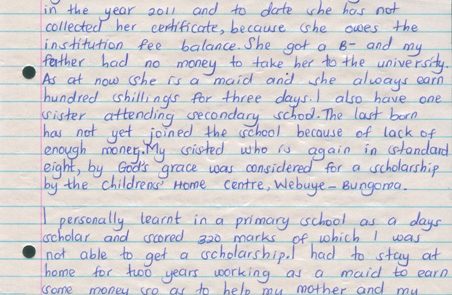 in the year 2011 and to date she has not
collected her certificate, because she owes the
institution fee balance. She got a B- and my
father had no money to take her to the university.
As at now she is a maid and she always earn
hundred shillings for three days. I also have one
sister attending secondary school. The last born
has not yet joined the school because of lack of
enough money. My sisted who is again in standard
eight, by God's grace was considered for a scholarship
by the childrens' Home centre, Webuye - Bungoma.
I personally learnt in a primary school as a days
scholar and scored 320 marks of which I was
not able to get a scholarship. I had to stay at
home for two years working as a maid to earn
some money so as to help my mother and my